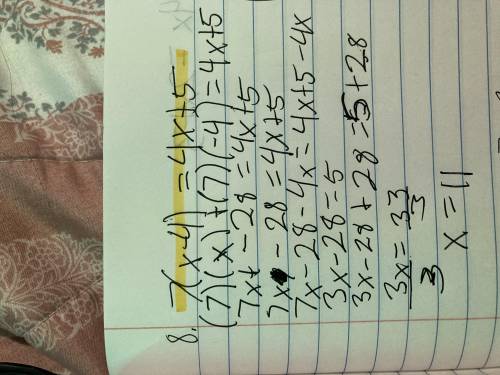 8. 7(x-4) = 4x+5
(7)(x)+(7)(-4) = 4x+5
7x+ - 28 = 4x+5
7x - 28 = 4x+5
7x - 28 - 4x = 4x+5 - 4x
3x - 28 = 5
3x - 28 + 28 = 5 + 28
3x = 33
3 3
x = 11